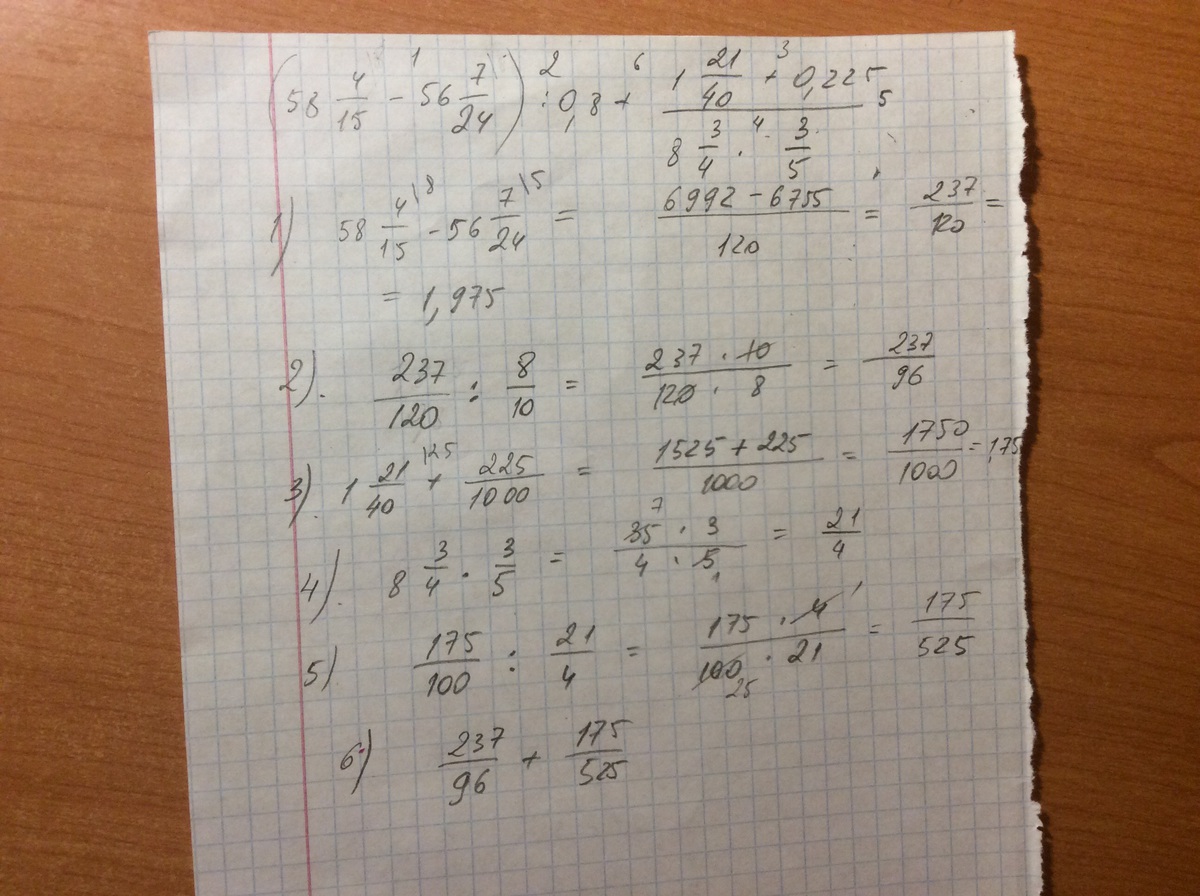 (58 4/15 - 56 7/24) : 0,8 + (1 21/40 + 0,225)/(8 3/4 · 3/5) 1 2 6 3 4 5
1) 58 4\8/15 - 56 7\5/24 = (6992 - 6755)/120 = 237/120 =
= 1,975
2). 237/120 : 8/10 = (237 · 10)/(120 · 8) = 237/96
3). 1 21\25/40 + 225/1000 = (1525 + 225)/1000 = 1750/1000 = 1,75
4). 8 3/4 · 3/5 = (35 7 · 3)/(4 · 5 1) = 21/4
5) 175/100 : 21/4 = (175 · 4 1)/(100 25 · 21) = 175/525
6) 237/96 + 175/525